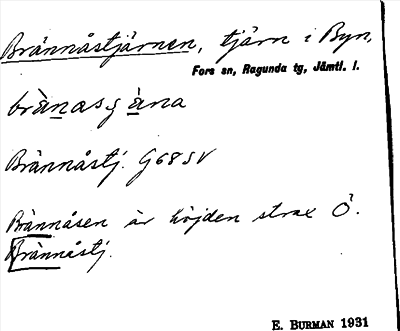 Brännåstjärnen, tjärn i Byn,
Fors sn, Ragunda tg, Jämtl. l.
brànasʒ àna
Brännåstj. G68SV
Brännåsen är höjden strax Ö.
Brännåstj.
E. BURMAN 1931